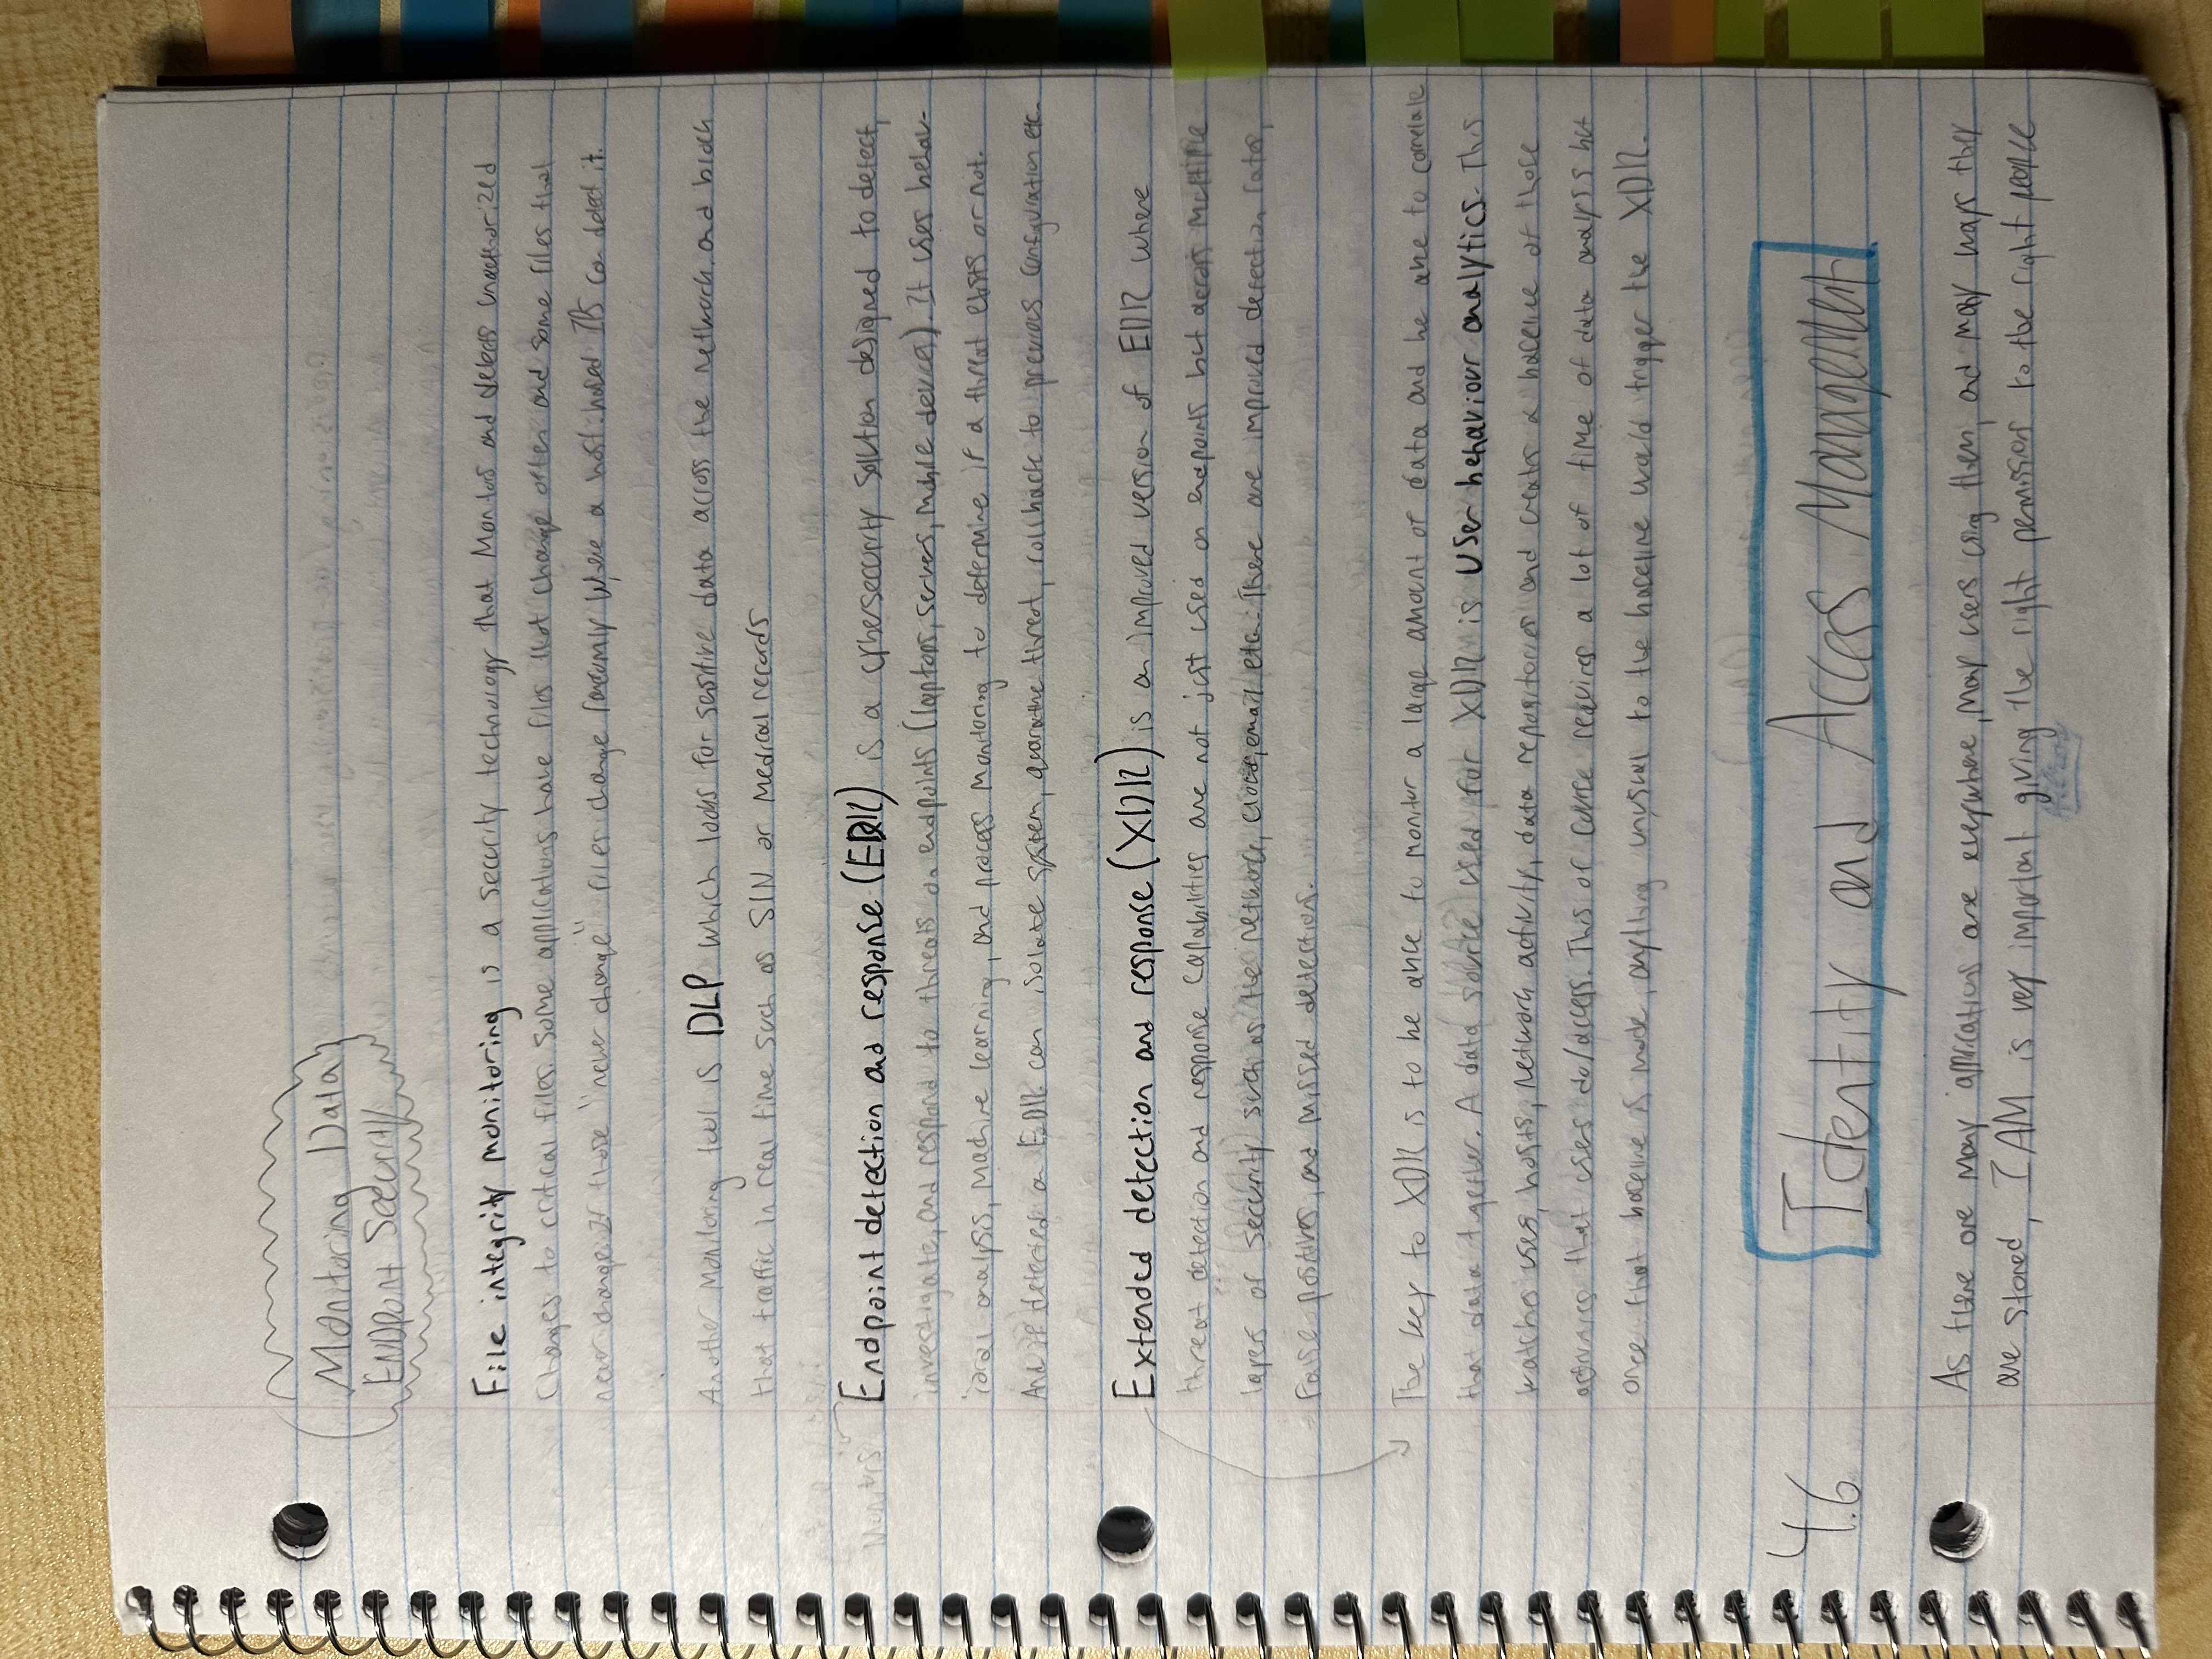 Monitoring Data
ENDPoint Security
File integrity monitoring is a security technology that Monitors and detects unauthorized
Changes to critical files. Some applications have files that change often and some files that
never change. If those "never change" files change randomly where a host-based IPS can detect it.
Another Monitoring tool is DLP which looks for sensitive data across the network and block
that traffic in real time such as SIN or Medical records
Monitors
Endpoint detection and response (EDR) is a cybersecurity solution designed to detect,
investigate, and respond to threats on endpoints (laptops, servers, mobile devices). It uses behav-
ioral analysis, Machine learning, and process Monitoring to determine if a threat exists or not.
And if detected an EDR can isolate system, quarantine threat, rollback to previous configuration etc.
Extended detection and response (XDR) is an improved version of EDR where
threat detection and response capabilities are not just used on endpoints but across multiple
layers of security such as the network, cloud, email etc. There are improved detection rates,
False positives, and missed detections.
The key to XDR is to be able to monitor a large amount of data and be able to correlate
that data together. A data source used for XDR is User behaviour analytics. This
watches users, hosts, network activity, data repositories and creates a baseline of those
activities that users do/access. This of course requires a lot of time of data analysis but
once that baseline is made, anything unusual to the baseline would trigger the XDR.
4.6
Identity and Access Management
As there are many applications are everywhere, many users using them, and many ways they
are stored, IAM is very important giving the right permissions to the right people